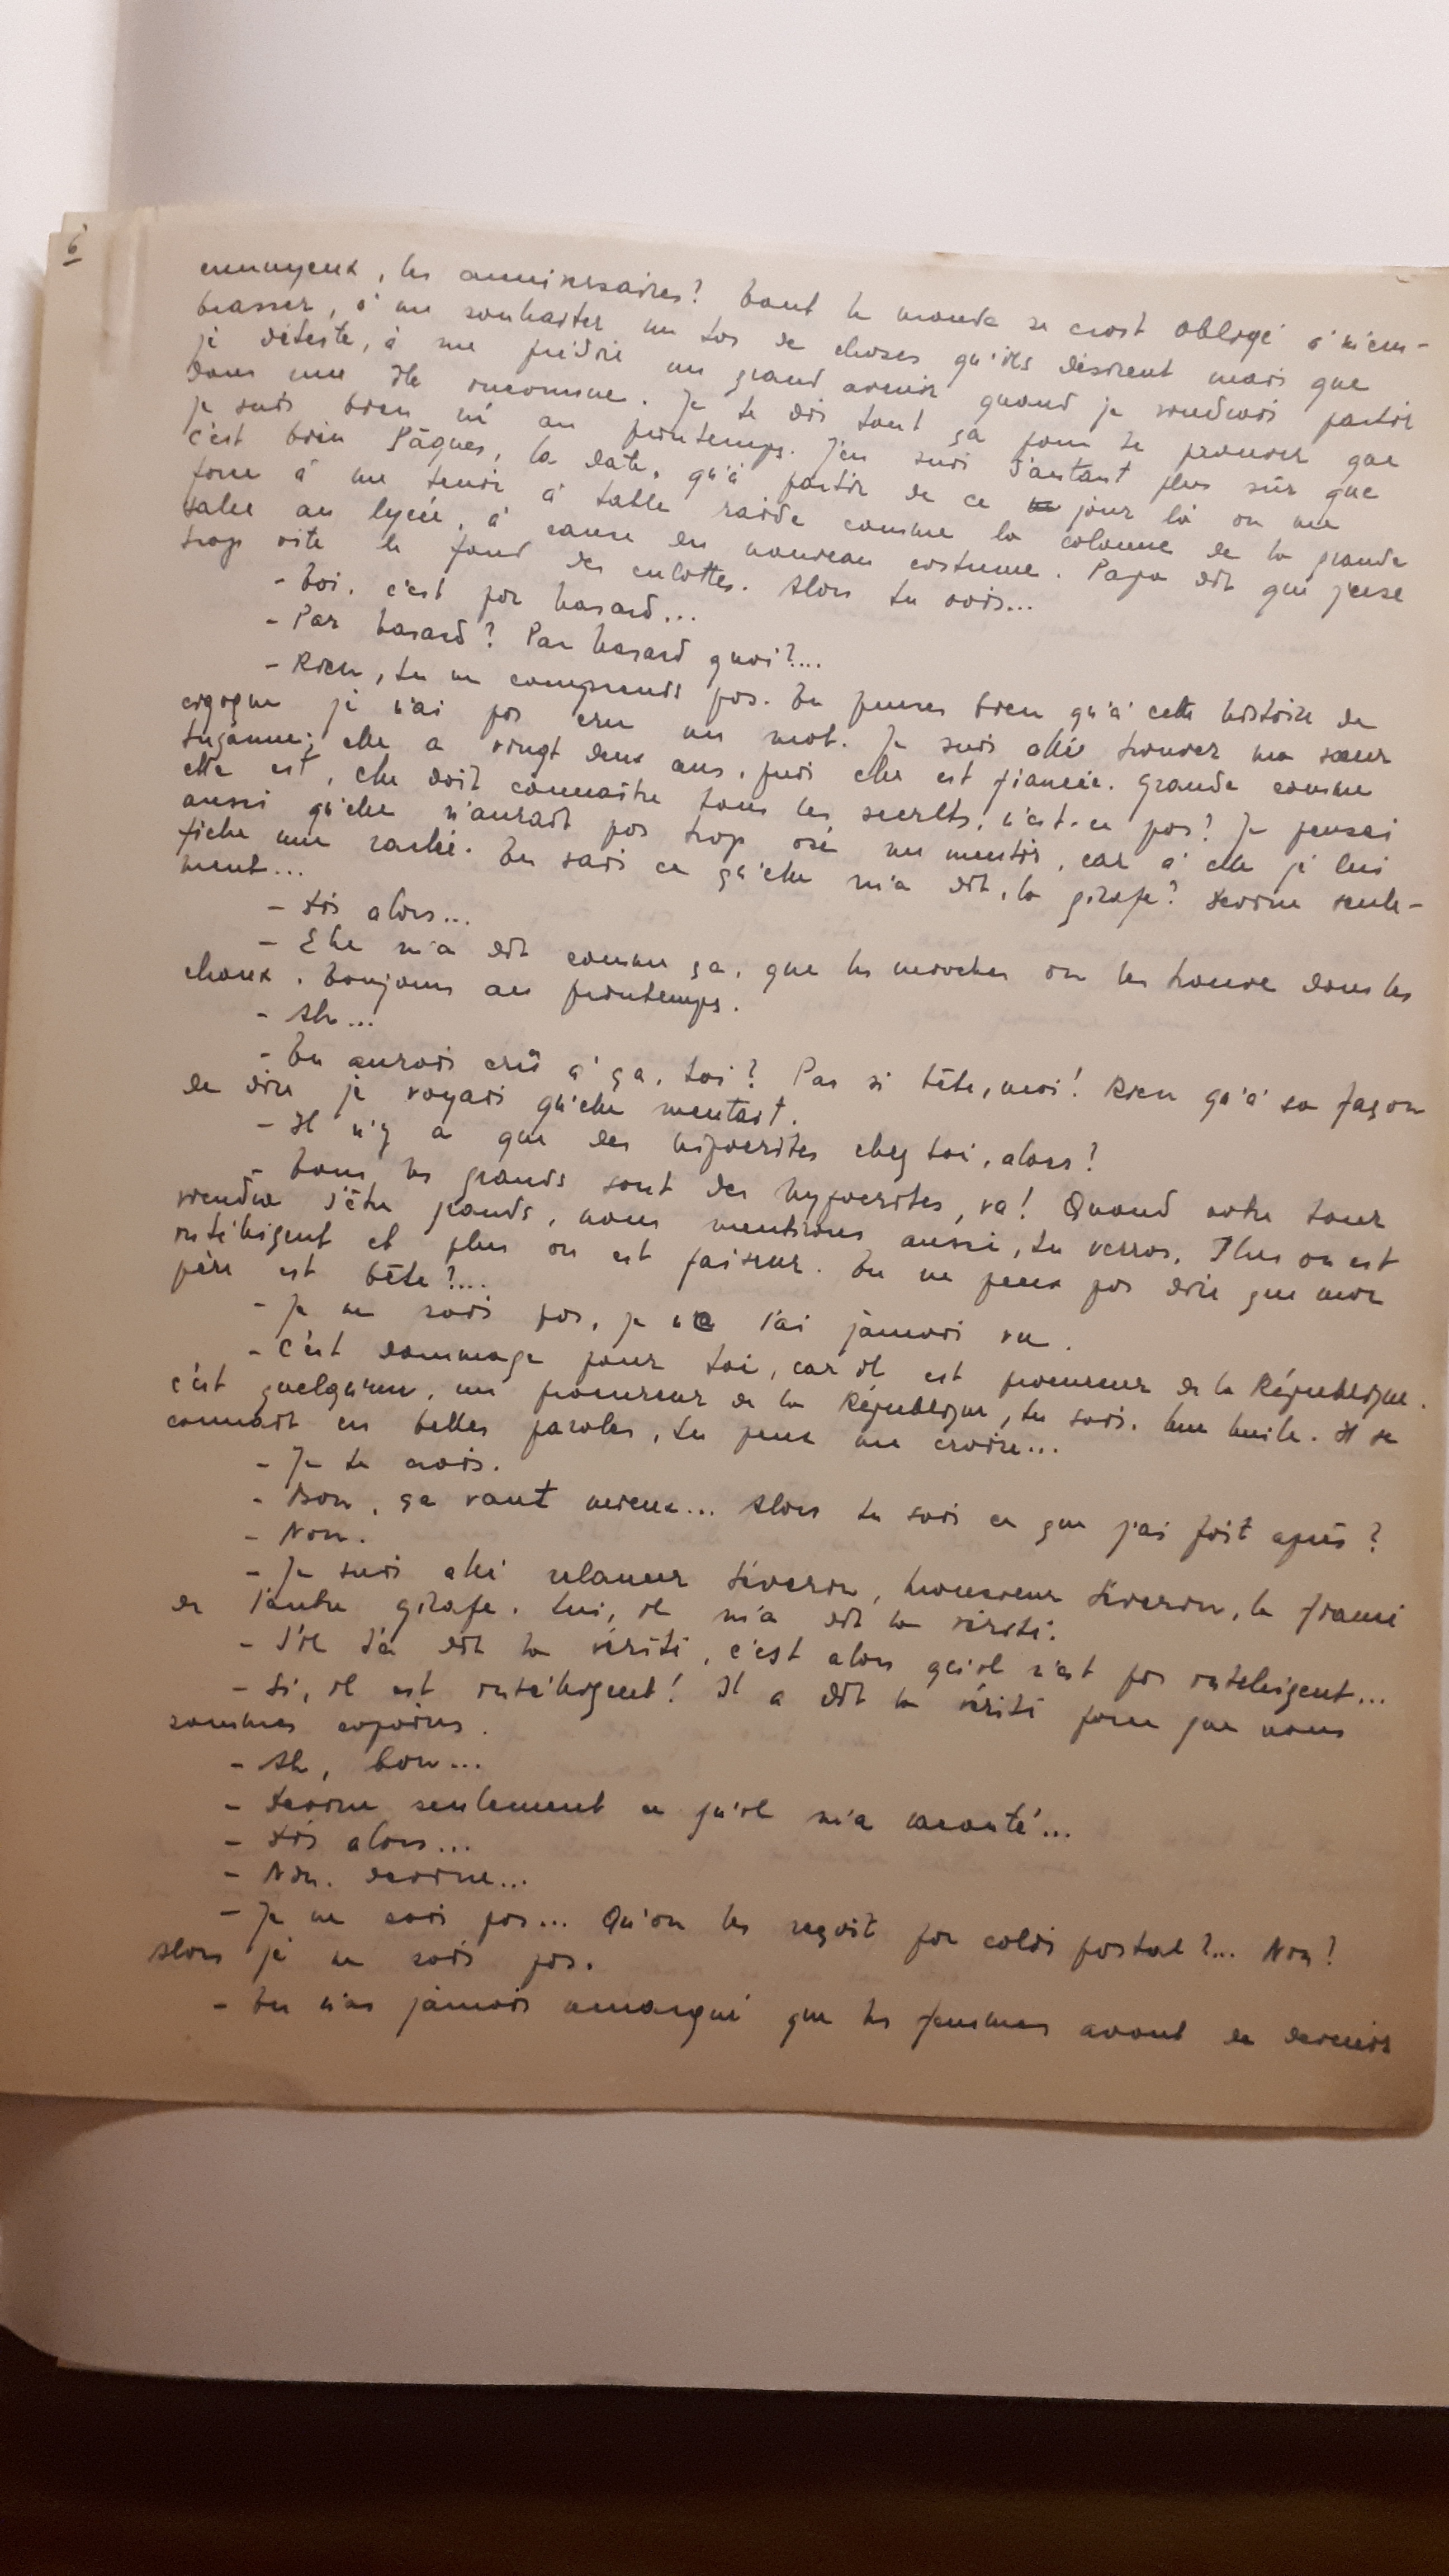 6
ennuyeux, les anniversaires? Tout le monde se croit obligé à m'em-
brasser, à me souhaiter un tas de choses qu'ils désirent mais que
je déteste, à me prédire un grand avenir quand je voudrais partir
dans une île inconnue. Je te dis tout ça pour te prouver que
je suis bien né au printemps. J'en suis d'autant plus sûr que
c'est bien Pâques, la date, qu'à partir de ce jour là on me
force à me tenir à table raide comme la colonne de la grande
salle au lycée, à cause du nouveau costume. Papa dit que j'use
trop vite le fond des culottes. Alors tu vois...
- Toi, c'est par hasard...
- Par hasard? Par hasard quoi?...
- Rien, tu ne comprends pas. Tu penses bien qu'à cette histoire de
cigogne je n'ai pas cru un mot. Je suis allé trouver ma sœur
Suzanne; elle a vingt deux ans, puis elle est fiancée. Grande comme
elle est, elle doit connaître tous les secrets, n'est-ce pas? Je pensai
aussi qu'elle n'aurait pas trop osé me mentir, car à elle je lui
fiche une raclée. Tu sais ce qu'elle m'a dit, la girafe? Devine seule-
ment...
- Dis alors...
- Elle m'a dit comme ça, que les mioches on les trouve dans les
choux. Toujours au printemps.
- Ah...
- Tu aurais crû à ça, toi? Pas si bête, moi! Rien qu'à sa façon
de dire je voyais qu'elle mentait.
- Il n'y a que des hipocrites chez toi, alors?
- Tous les grands sont des hypocrites, va! Quand notre tour
viendra d'être grands, nous mentirons aussi, tu verras. Plus on est
intélligent et plus on est faiseur. Tu ne peux pas dire que mon
père est bête?...
- Je ne sais pas, je ne l'ai jamais vu.
- C'est dommage pour toi, car il est procureur de la République.
C'est quelqu'un, un procureur de la République, tu sais. Une huile. Il se
connait en belles paroles, tu peux me croire...
- Je te crois.
- Bon, ça vaut mieux... Alors tu sais ce que j'ai fait après?
- Non.
- Je suis allé relancer Séverin, monsieur Séverin, le fiancé
de l'autre girafe. Lui, il m'a dit la vérité.
- S'il t'a dit la vérité, c'est alors qu'il n'est pas intelligent...
- Si, il est intélligent! Il a dit la vérité parce que nous
sommes copains.
- Ah, bon...
- Devine seulement ce qu'il m'a raconté...
- Dis alors...
- Non. Devine...
- Je ne sais pas... Qu'on les reçoit par colis postal?... Non?
Alors je ne sais pas.
- Tu n'as jamais remarqué que les femmes avant de devenir